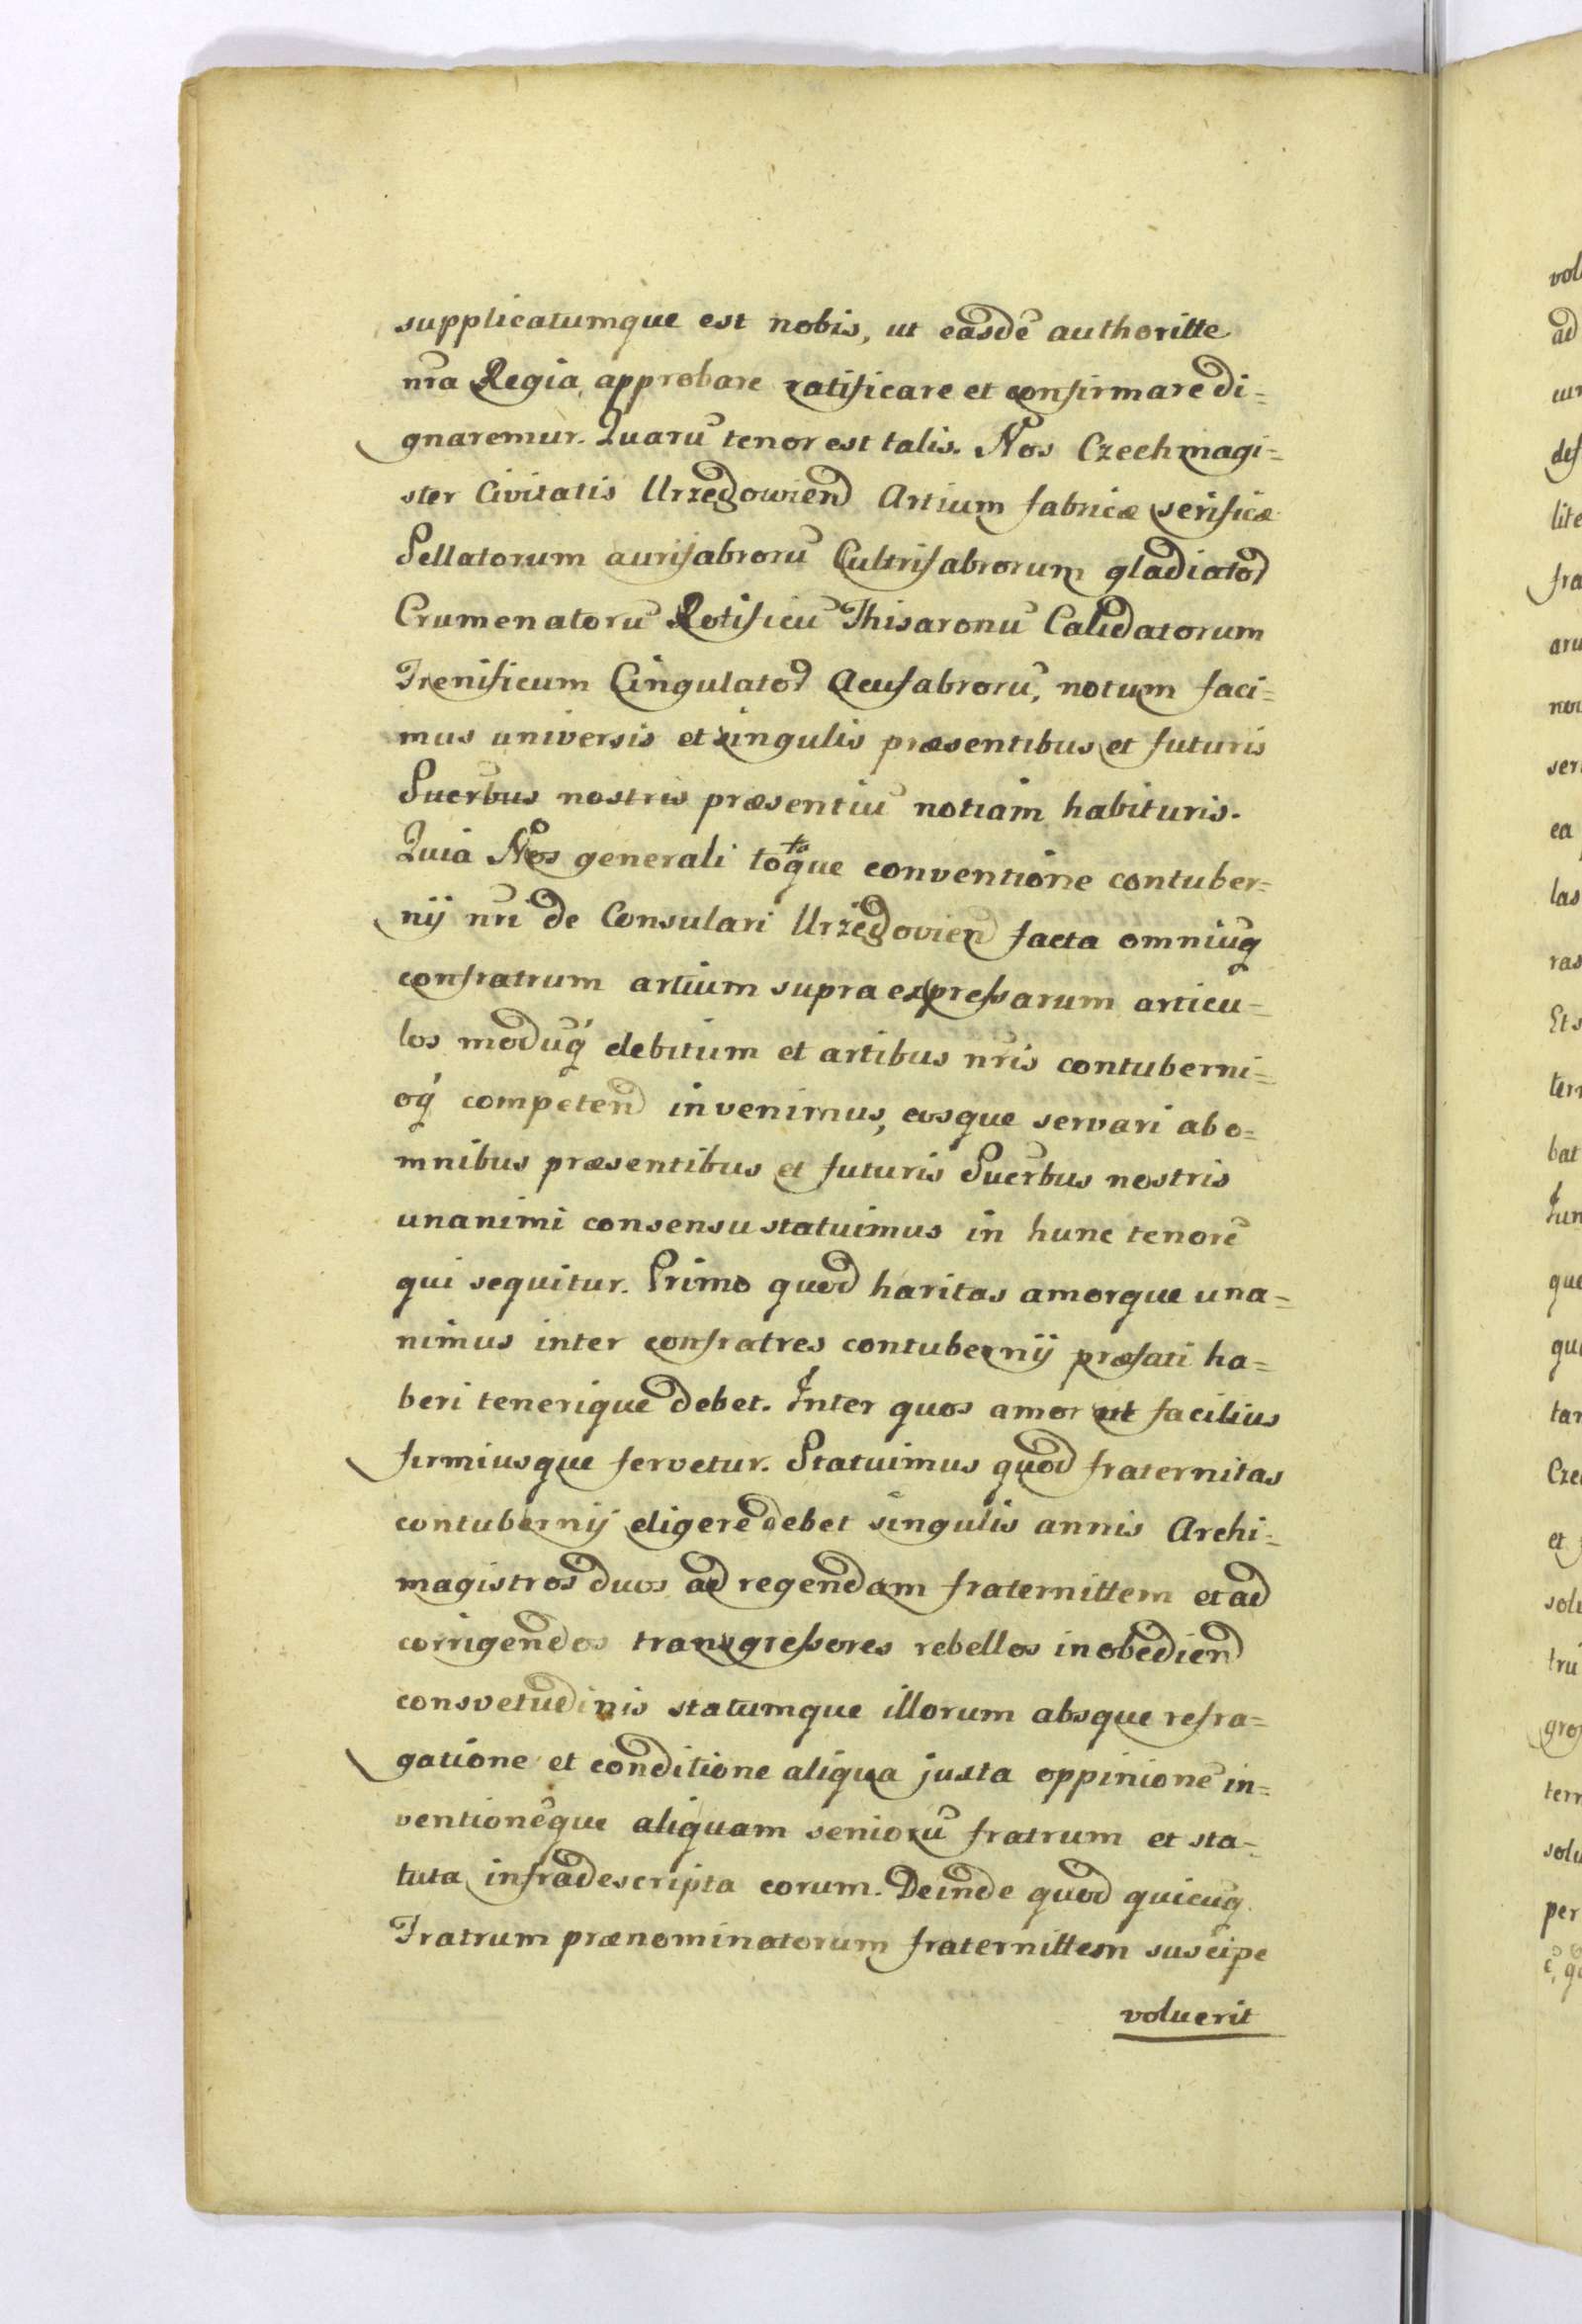 supplicatumque est nobis, ut easdē authoritte
nr̃a Regia, approbare ratificare et confirmare di=
gnaremur. Quarũ tenor est talis. Nos Czechmagi=
ster Civitatis Urzędowien̄ Artium fabricæ serificæ
Sellatorum aurifabrorũ Cultrifabrorum gladiator̄
Crumenatorũ Rotificũ Thisaronũ Calidatorum
Frenificum Cingulator̄ Acufabrorũ, notum faci=
mus universis et singulis præsentibus et futuris
Sucr̃bus nostris præsentiũ notiam habituris.
Quia Nos generali totaque conventione contuber=
nij nr̃i de Consulari Urzędovien̄ facta omniuq̃
confratrum artium supra expressarum articu=
los moduq̃ debitum et artibus nr̃is contuberni=
oq̃ competen̄ invenimus, eosque servari ab o=
mnibus præsentibus et futuris Sucr̃bus nostris
unanimi consensu statuimus in hunc tenorē
qui sequitur. Primo quod haritas amorque una=
nimus inter confratres contubernij præfati ha=
beri tenerique debet. Inter quos amor ut facilius
firmiusque servetur. Statuimus quod fraternitas
contubernij eligere debet singulis annis Archi=
magistros duos ad regendam fraternittem et ad
corrigendos transgressores rebellos inobedien̄
consvetudinis statumque illorum absque refra=
gatione et conditione aliqua justa oppinionē in=
ventionēque aliquam seniorũ fratrum et sta=
tuta infradescripta eorum. Deinde quod quicuq̃
Fratrum prænominatorum fraternittem suscipe
voluerit